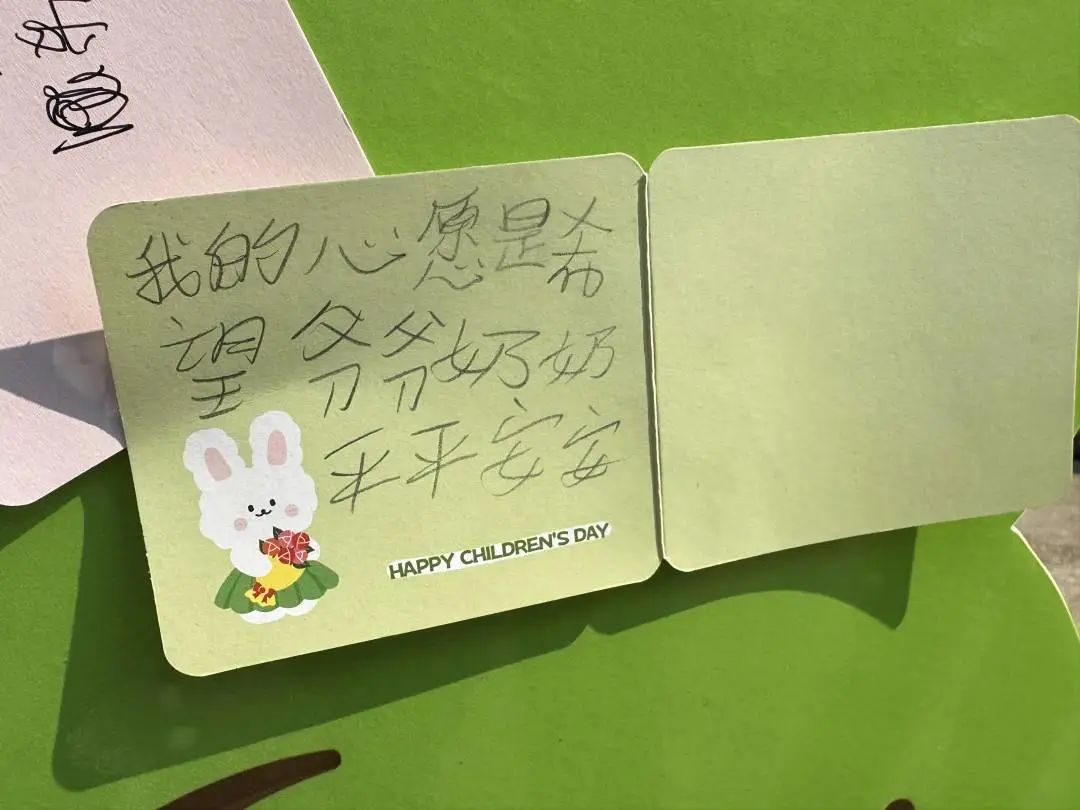 我的心愿是希
望爷爷奶奶
平平安安
HAPPY CHILDREN'S DAY